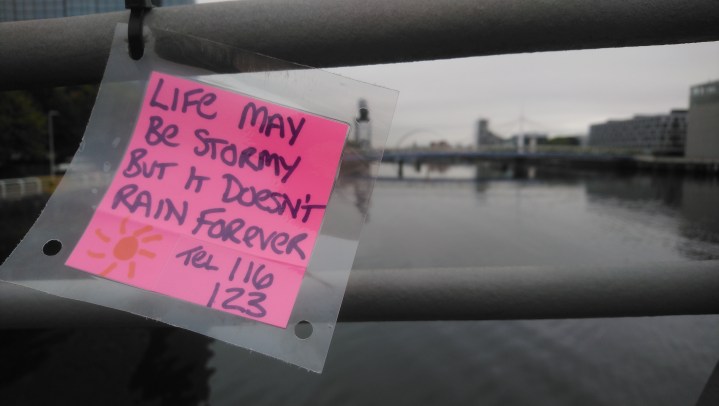 LIFE MAY
BE STORMY
BUT IT DOESN'T
RAIN FOREVER
TEL 116
123